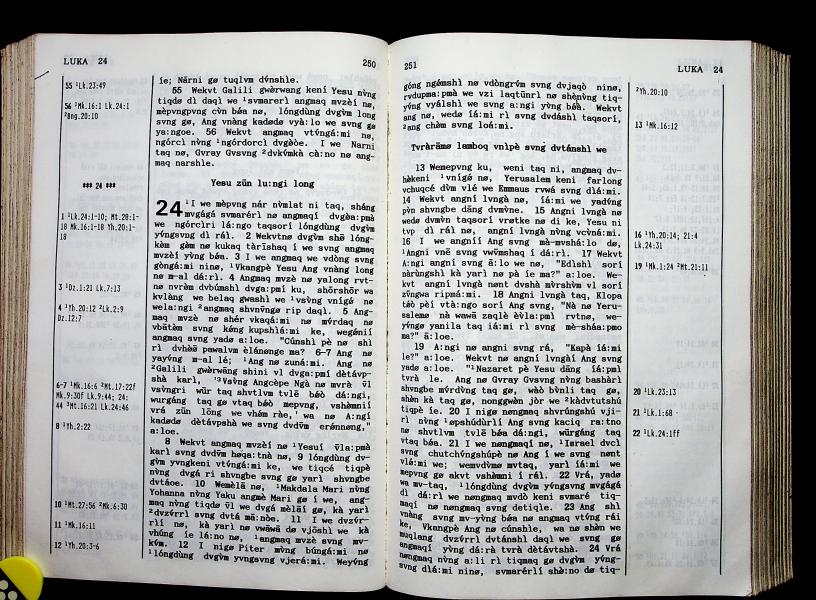 LUKA 24
250
55 ¹Lk.23:49
56 ¹Mk.16:1 Lk.24:1
²Bng.20:10
*** 24 ***
1 ¹Lk.24:1-10; Mt.28:1-
18 Mk.16:1-18 Yh.20:1-
18
3 ¹Dz.1:21 Lk.7:13
4 ¹Yh.20:12 ²Lk.2:9
Dz.12:7
6-7 ¹Mk.16:6 ²Mt.17:22f
Mk.9:30f Lk.9:44; 24:
44 ³Mt.16:21 Lk.24:46
8 ¹Yh.2:22
10 ¹Mt.27:56 ²Mk.6:30
11 ¹Mk.16:11
12 ¹Yh.20:3-6
íe; Nărni gø tuqlvm dv́nshìe.
55 Wekvt Galili gwèrwang kení Yesu nv̀ng
tiqdø dl daql we ¹svmarerl angmaq mvzèí nø,
mèpvngpvng cv̀n béa nø, lóngdùng dvgv̀m long
svng gø, Ang vnàng kadødø vyà:lo we svng gø
ya:ngoe. 56 Wekvt angmaq vtv́ngá:mi nø,
ngórcl nv̀ng ¹ngórdorcl dvgèòe. I we Narni
taq nø, Gvray Gvsvng ²dvkv́mkà cà:no nø ang-
maq narshìe.
Yesu zŭn lu:ngì long
24 ¹I we mèpvng nár nv̀mlat ni taq, shǎng
mvgágá svmarèrl nø angmaqí dvgèa:pmà
we ngórclrì lá:ngo taqsorí lóngdùng dvgv̀m
yv́ngsvng dl rál. 2 Wekvtnø dvgv̀m shø lóng-
kèm gèm nø kukaq tàrìshaq í we svng angmaq
mvzèí yv̀ng bǿa. 3 I we angmaq we vdòng svng
gòngá:mi ninø, ¹Vkangpè Yesu Ang vnàng long
nø m-al dá:rì. 4 Angmaq mvzèò nø yalong rvt-
nø nvrèm dvbúmshì dvga:pmí ku, shǒrshǒr wa
kvlàng we belaq gwashì we ¹vsv̀ng vnígé nø
wela:ngì ²angmaq shvnv̀ngø rip daqì. 5 Ang-
maq mvzèò nø shèr vkaqá:mi nø mv́rdaq nø
vbătèm svng kèng kupshìá:mi ke, wegǿníí
angmaq svng yadø a:loe. "Cúnshì pè nø shì
rì dvhèø pawalvm èlánønge ma? 6-7 Ang nø
yayv́ng m-al lé; ¹Ang nø zuná:mi. Ang nø
²Galili gwèrwàng shìnì vl dvga:pmí dètávp-
shà karì, '³Vsv̀ng Angcèpe Ngà nø mvrà v̄l
vsv̀ngrì wŭr taq shvtlvm tvlē bǿò dá:ngì,
wurgáng taq gø vtaq bǿò mepvng, vshèmnìí
vrá zŭn lŏng we vhèm rǎe,' wa nø A:ngí
kadødø dètávpshà we svng dvdv̀m èrónnøng,"
a:loe.
8 Wekvt angmaq mvzèí nø ¹Yesuí v̄la:pmà
karì svng dvdv̀m høqa:tnà nø, 9 lóngdùng dv-
gv̀m yvngkenì vtv́ngá:mi ke, we tiqcé tiqpè
nv̀ng dvgá rì shvngbe svng gø yarì shvngbe
dvtáoe. 10 Wemèlà nø, ¹Makdala Mari nv̀ng
Yohanna nv̀ng Yaku angmè Mari gø í we, ang-
maq nv̀ng tiqdø v̄l we dvgá mèlǎí gø, kà yarì
²dvzv́rrì svng dvtá mǎ:nòe. 11 I we dvzv́r-
rìí nø, kà yarì nø vwǎwǎ dø vjǒshì we kà
vhúng íe lá:no nø, ¹angmaq mvzèò svng mv-
kv́m. 12 I nigø Piter mv̀ng búngá:mi nø
¹lóngdùng dvgv̀m yvngsvng vjerá:mi. Weyv́ng
251
LUKA 24
góng ngǿmshì nø vdòngrv́m svng dvjaqò ninø,
rvdupma:pmà we vzì laqtūnrì nø shèǹvng tiq-
yv́ng vyálshì we svng a:ngì yv̀ng bǿà. Wekvt
ang nø, wedø íá:mi rì svng dvdáshì taqsorí,
²ang chèm svng loá:mi.
Tvràrāmø lamboq vnípè svng dvtánshì we
13 Wemepvng ku, wenì taq nì, angmaq dv-
hèkenì ¹vnígé nø, Yerusalem kenì farlong
vchuqcé dv̀m vlé we Emmaus rvwá svng dìá:mi.
14 Wekvt Angní lvngà nø, íá:mi we yadv́ng
pv̀n shvngbe dǎng dvmv̀ne. 15 Angní lvngà nø
wedø dvmv̀n taqsorí vrøtke nø dì ke, Yesu nì
tvp dì rál nø, angní lvngà nv̀ng vcv̀ná:mi.
16 I we angníí Ang svng mà-mvshá:lo dø,
¹Angní vnē svng vwv̄mshaq í dá:rì. 17 Wekvt
A:ngí angní svng ǎ:lo we nø, "Edìshì sorí
nàrùngshì kà yarì nø pà íe ma?" a:loe. We-
kvt angní lvngà nønt dvshà mv̀rshv̀m vl sorí
zv̄ngwa rìpmá:mi. 18 Angní lvngà taq, Klopa
tǿò pèí vtà:ngo sorí Ang svng, "Nà nø Yeru-
salemø nà wawā zaqlè èv̀la:pmì rvtnø, we-
yv́ngø yanìla taq íá:mi rì svng mè-shǎa:pmo
ma?" ǎ:loe.
19 A:ngì nø angní svng rá, "Kapà íá:mi
le?" a:loe. Wekvt nø angní lvngàí Ang svng
yadø a:loe. "¹Nazaret pè Yesu dǎng íá:pmì
tvrà le. Ang nø Gvray Gvsvng nv̀ng bashàrì
shvngbe mv́rdv̀ng taq gø, wàò bv̀nlì taq gø,
shèn kà taq gø, nonggwèn jòr we ²kàdvtutshú
tiqpè íe. 20 I nigø nøngmaq shvrúngshú vjì-
rì nv̀ng ¹øpshúdùrìí Ang svng kaciq ra:tno
nø shvtlvm tvlē bǿa dá:ngì, wūrgáng taq
vtaq bǿa. 21 I we nøngmaqí nø, ¹Israel dvcì
svng chutchv́ngshúpè nø Ang í we svng nønt
vlé:mi we; wemvdv̀mø mvtaq, yarì íá:mi we
mepvng gø akvt vshèmnì í rál. 22 Vrá, yadø
wa mv-taq, ¹lóngdùng dvgv̀m yv́ngsvng mvgágá
dì dá:rì we nøngmaq mvdò kenì svmaré tiq-
maqí nø nøngmaq svng detiqìe. 23 Ang shì
vnàng svng mv-yv̀ng bǿa nø angmaq vtv́ng ráì
ke, Vkangpè Ang nø cúnshìe, wa nø shèn we
muqlang dvzv́rrì dvtánshì daqì we svng gø
angmaqí yv̀ng dá:rà tvrà dètávtshà. 24 Vrá
nøngmaq nv̀ng a:lì rì tiqmaq gø dvgv̀m yv́ng-
svng dìá:mi ninø, svmarérìí shè:no dø tiq-
²Yh.20:10
13 ¹Mk.16:12
16 ¹Yh.20:14; 21:4
Lk.24:31
19 ¹Mk.1:24 ²Mt.21:11
20 ¹Lk.23:13
21 ¹Lk.1:68
22 ¹Lk.24:1ff